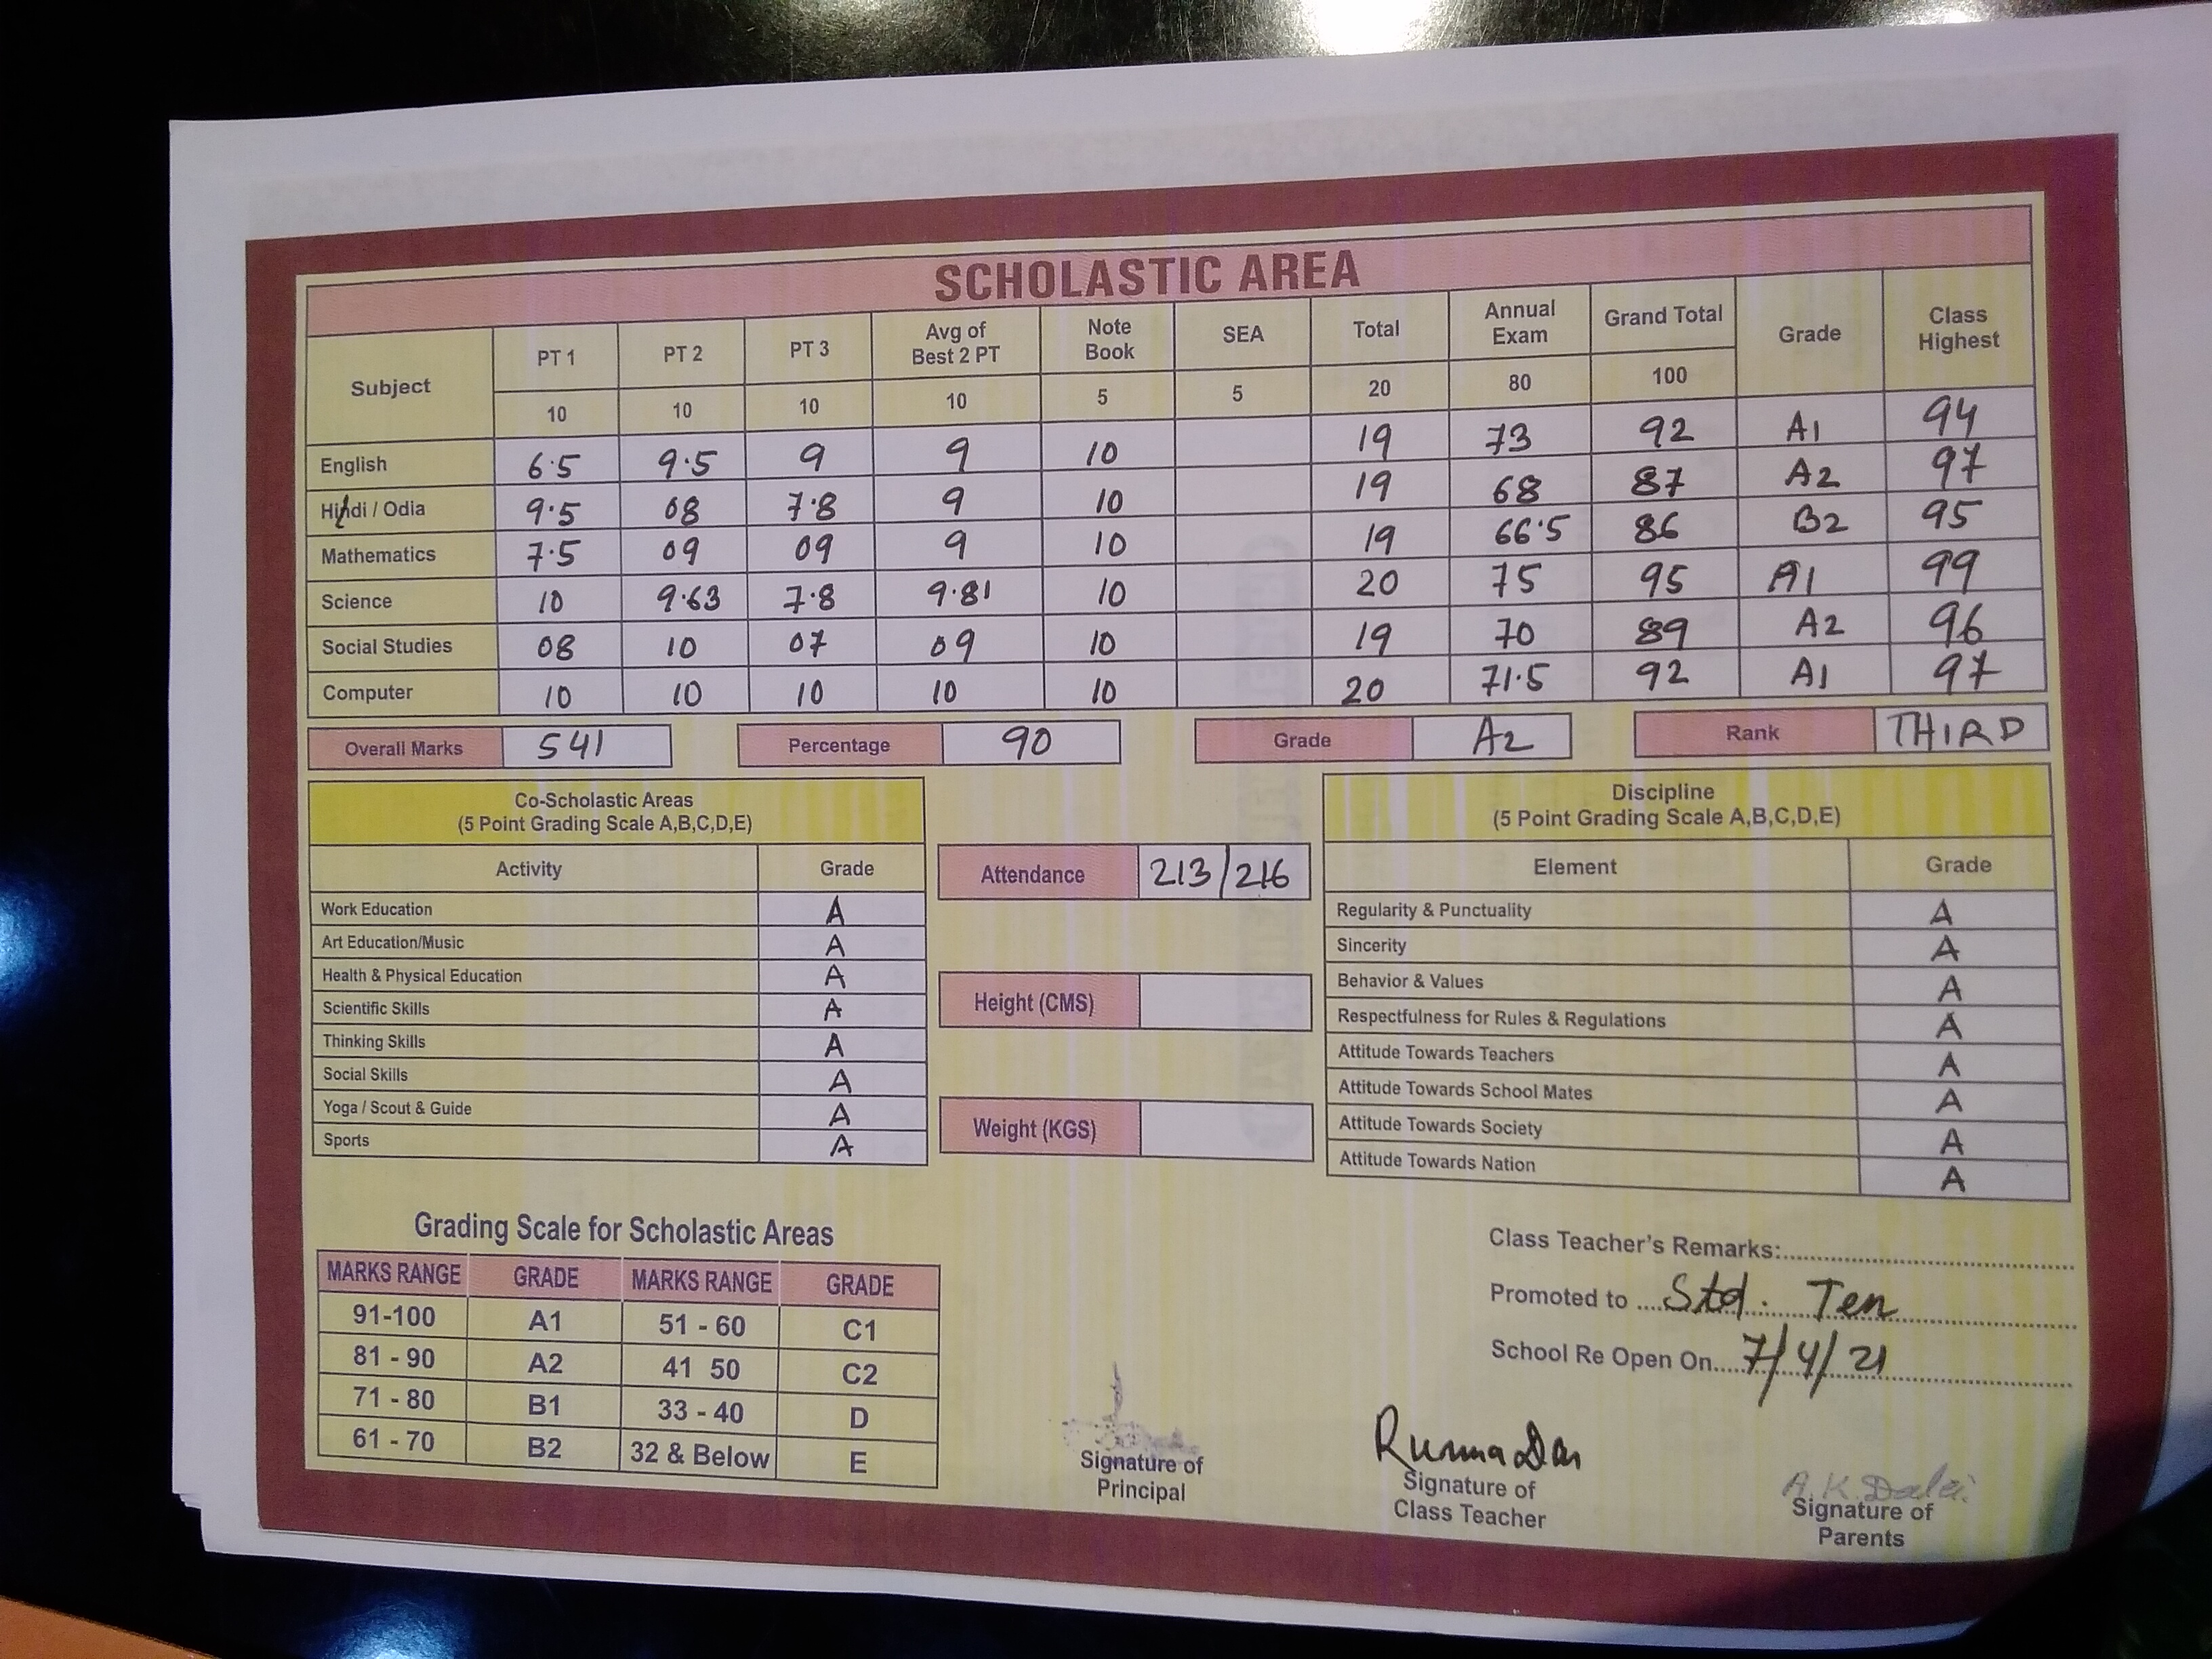 SCHOLASTIC AREA
Subject PT 1 PT 2 PT 3 Avg of Best 2 PT Note Book SEA Total Annual Exam Grand Total Grade Class Highest
10 10 10 10 5 5 20 80 100
English 6.5 9.5 9 9 10 19 73 92 A1 94
Hindi / Odia 9.5 08 7.8 9 10 19 68 87 A2 97
Mathematics 7.5 09 09 9 10 19 66.5 86 B2 95
Science 10 9.63 7.8 9.81 10 20 75 95 A1 99
Social Studies 08 10 07 09 10 19 70 89 A2 96
Computer 10 10 10 10 10 20 71.5 92 A1 97
Overall Marks 541 Percentage 90 Grade A2 Rank THIRD
Co-Scholastic Areas
(5 Point Grading Scale A,B,C,D,E)
Activity Grade
Work Education A
Art Education/Music A
Health & Physical Education A
Scientific Skills A
Thinking Skills A
Social Skills A
Yoga / Scout & Guide A
Sports A
Attendance 213/216
Height (CMS)
Weight (KGS)
Discipline
(5 Point Grading Scale A,B,C,D,E)
Element Grade
Regularity & Punctuality A
Sincerity A
Behavior & Values A
Respectfulness for Rules & Regulations A
Attitude Towards Teachers A
Attitude Towards School Mates A
Attitude Towards Society A
Attitude Towards Nation A
Grading Scale for Scholastic Areas
MARKS RANGE GRADE MARKS RANGE GRADE
91-100 A1 51 - 60 C1
81 - 90 A2 41 50 C2
71 - 80 B1 33 - 40 D
61 - 70 B2 32 & Below E
Class Teacher's Remarks:
Promoted to Std. Ten
School Re Open On 7/4/21
Signature of
Principal
Ruma Das
Signature of
Class Teacher
A. K. Dalei
Signature of
Parents